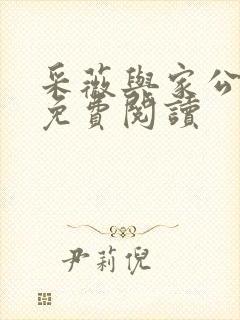 采薇與家公
免費閱讀
尹莉倪